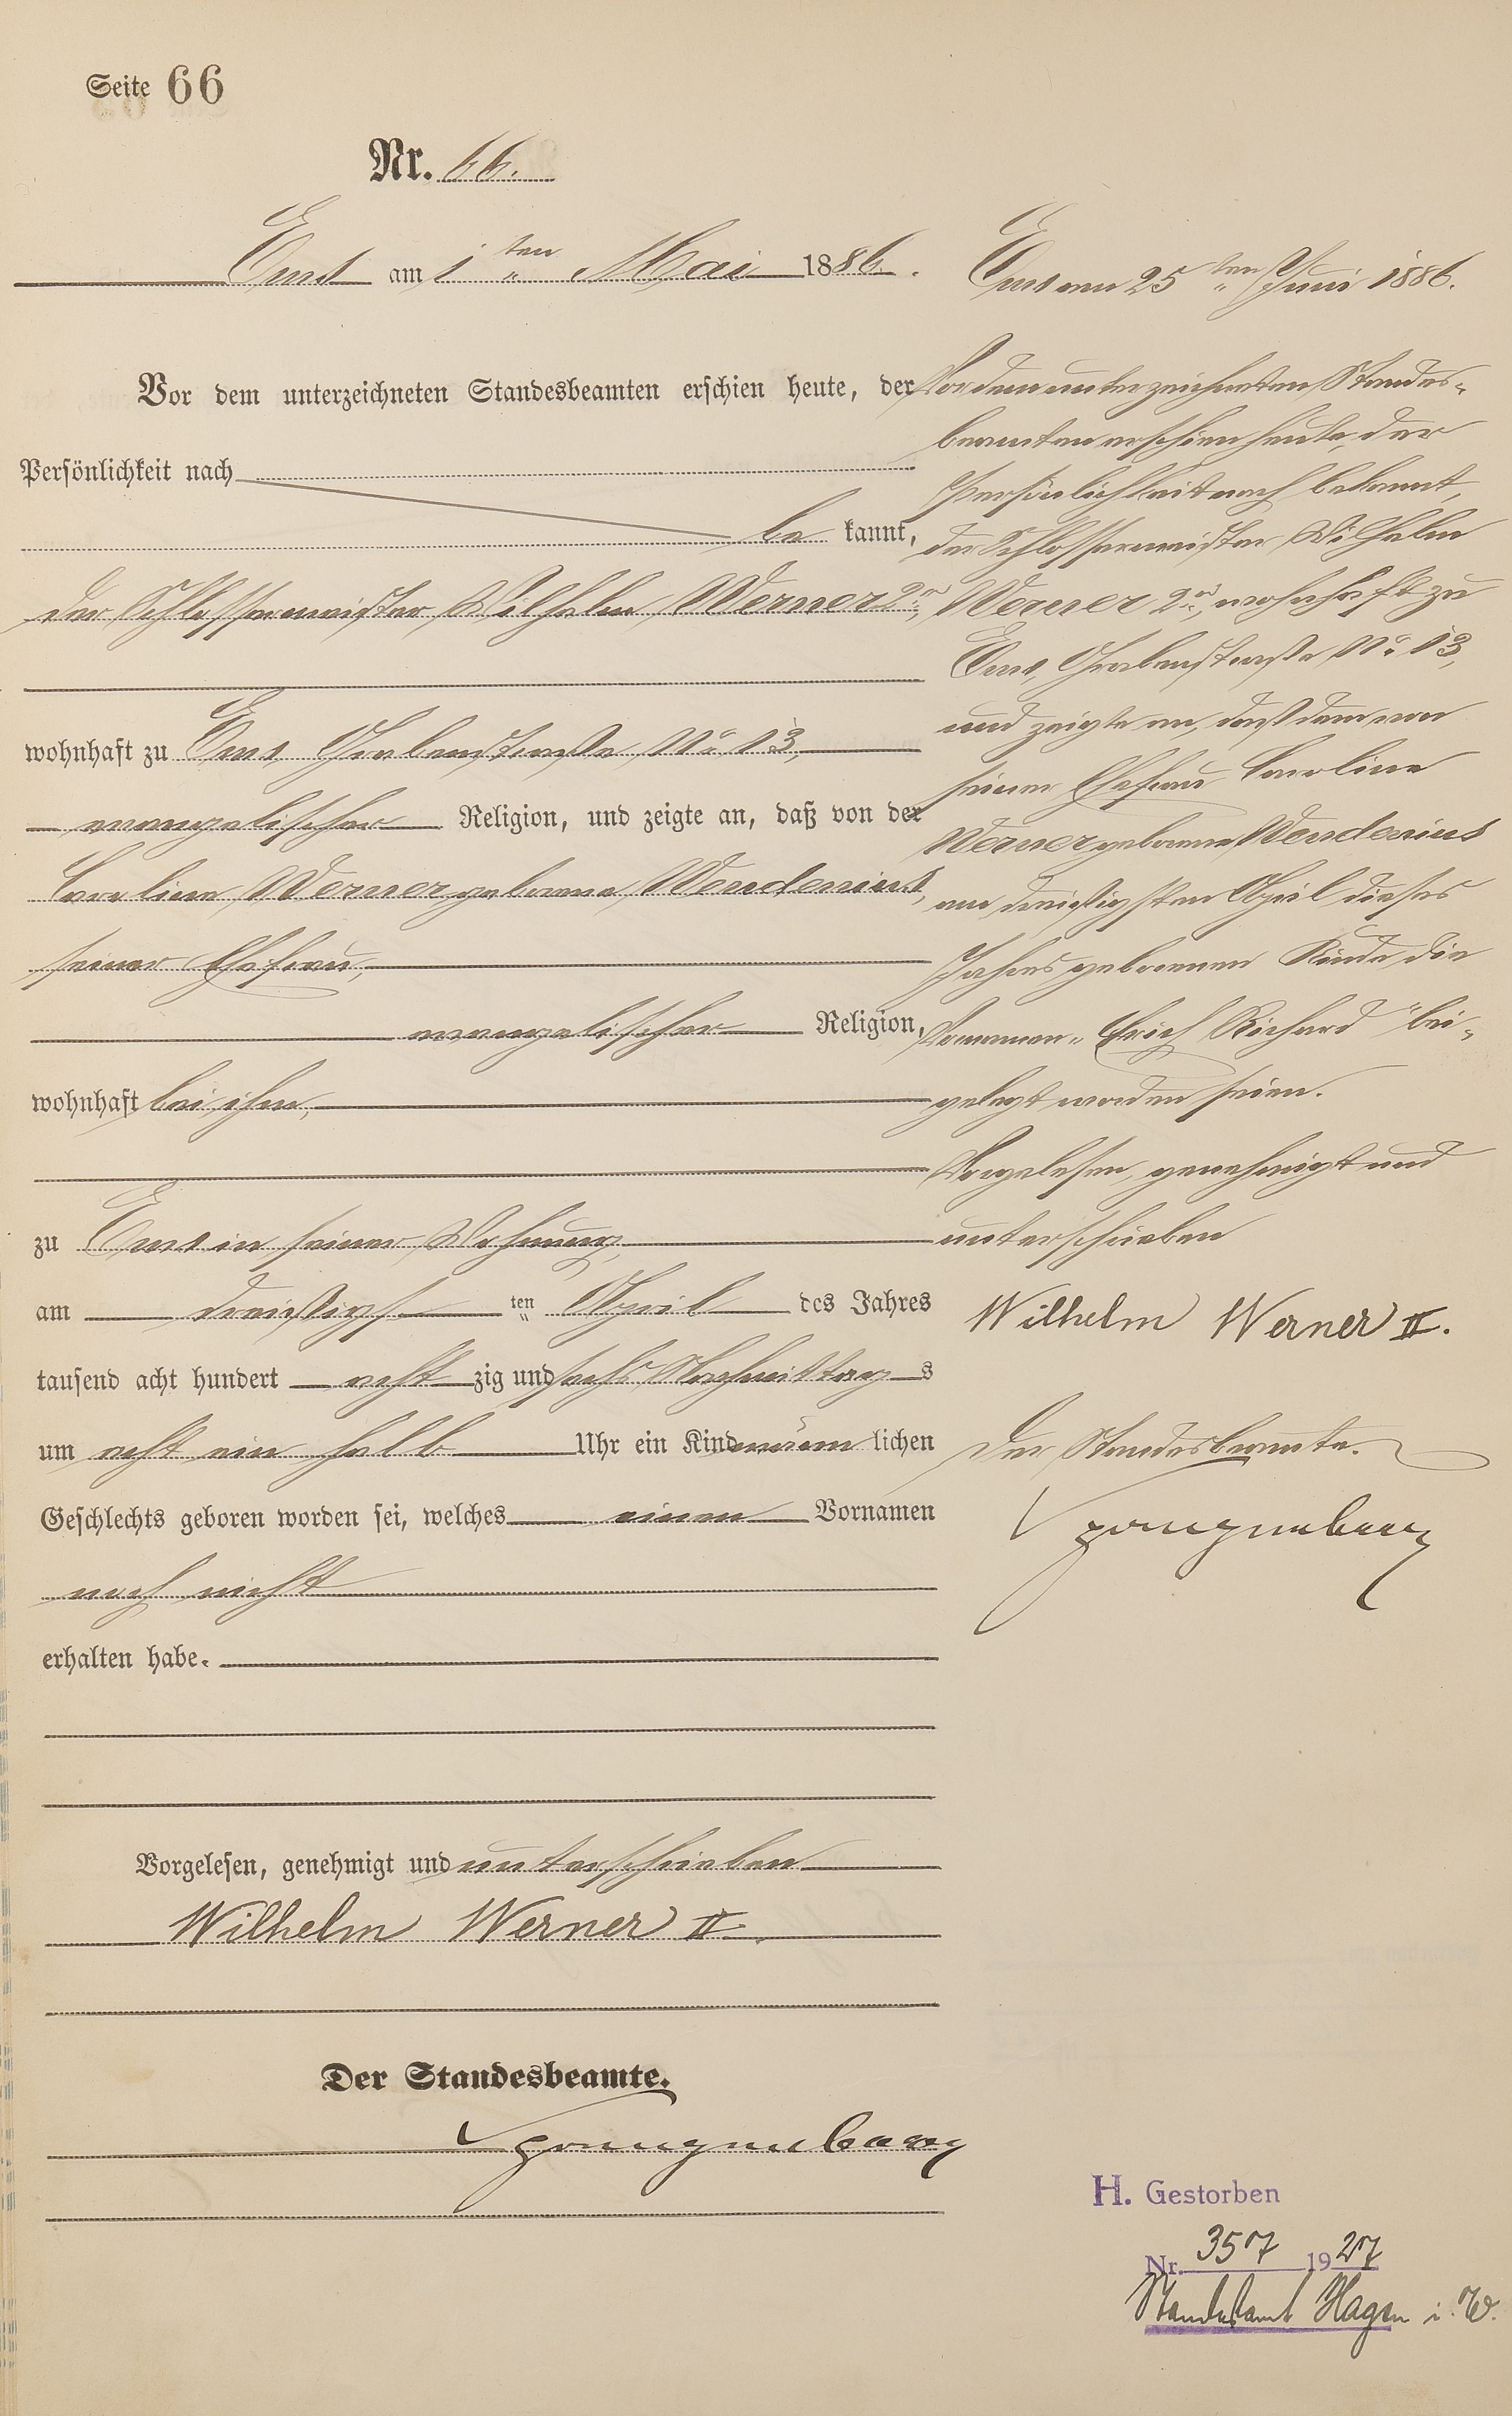 Seite 66
Nr. 66.
Ems am 1ten Mai 1886.
Vor dem unterzeichneten Standesbeamten erschien heute, der
Persönlichkeit nach
be kannt,
der Schlossermeister Wilhelm Werner 2r,
wohnhaft zu Ems, Grabenstraße No. 13,
evangelischer Religion, und zeigte an, daß von der
Caroline Werner geborene Wendenius,
seiner Ehefrau,
evangelischer Religion,
wohnhaft bei ihm,
zu Ems in seiner Wohnung,
am dreißigsten April des Jahres
tausend acht hundert acht zig und sechs Nachmittags
um acht ein halb Uhr ein Kind männlichen
Geschlechts geboren worden sei, welches einen Vornamen
noch nicht
erhalten habe.
Vorgelesen, genehmigt und unterschrieben
Wilhelm Werner II.
Der Standesbeamte.
Ems am 25ten Juni 1886.
Vor dem unterzeichneten Standes-
beamten erschien heute, der
Persönlichkeit nach bekannt,
der Schlossermeister Wilhelm
Werner 2r, wohnhaft zu
Ems, Grabenstraße No. 13,
und zeigte an, daß dem von
seiner Ehefrau Caroline
Werner geborene Wendenius
am dreißigsten April dieses
Jahres geborenen Kinde die
Vornamen „Erich Richard" bei-
gelegt worden seien.
Vorgelesen, genehmigt und
unterschrieben
Wilhelm Werner II.
Der Standesbeamte.
H. Gestorben
Nr. 357 1927
Standesamt Hagen i. W.